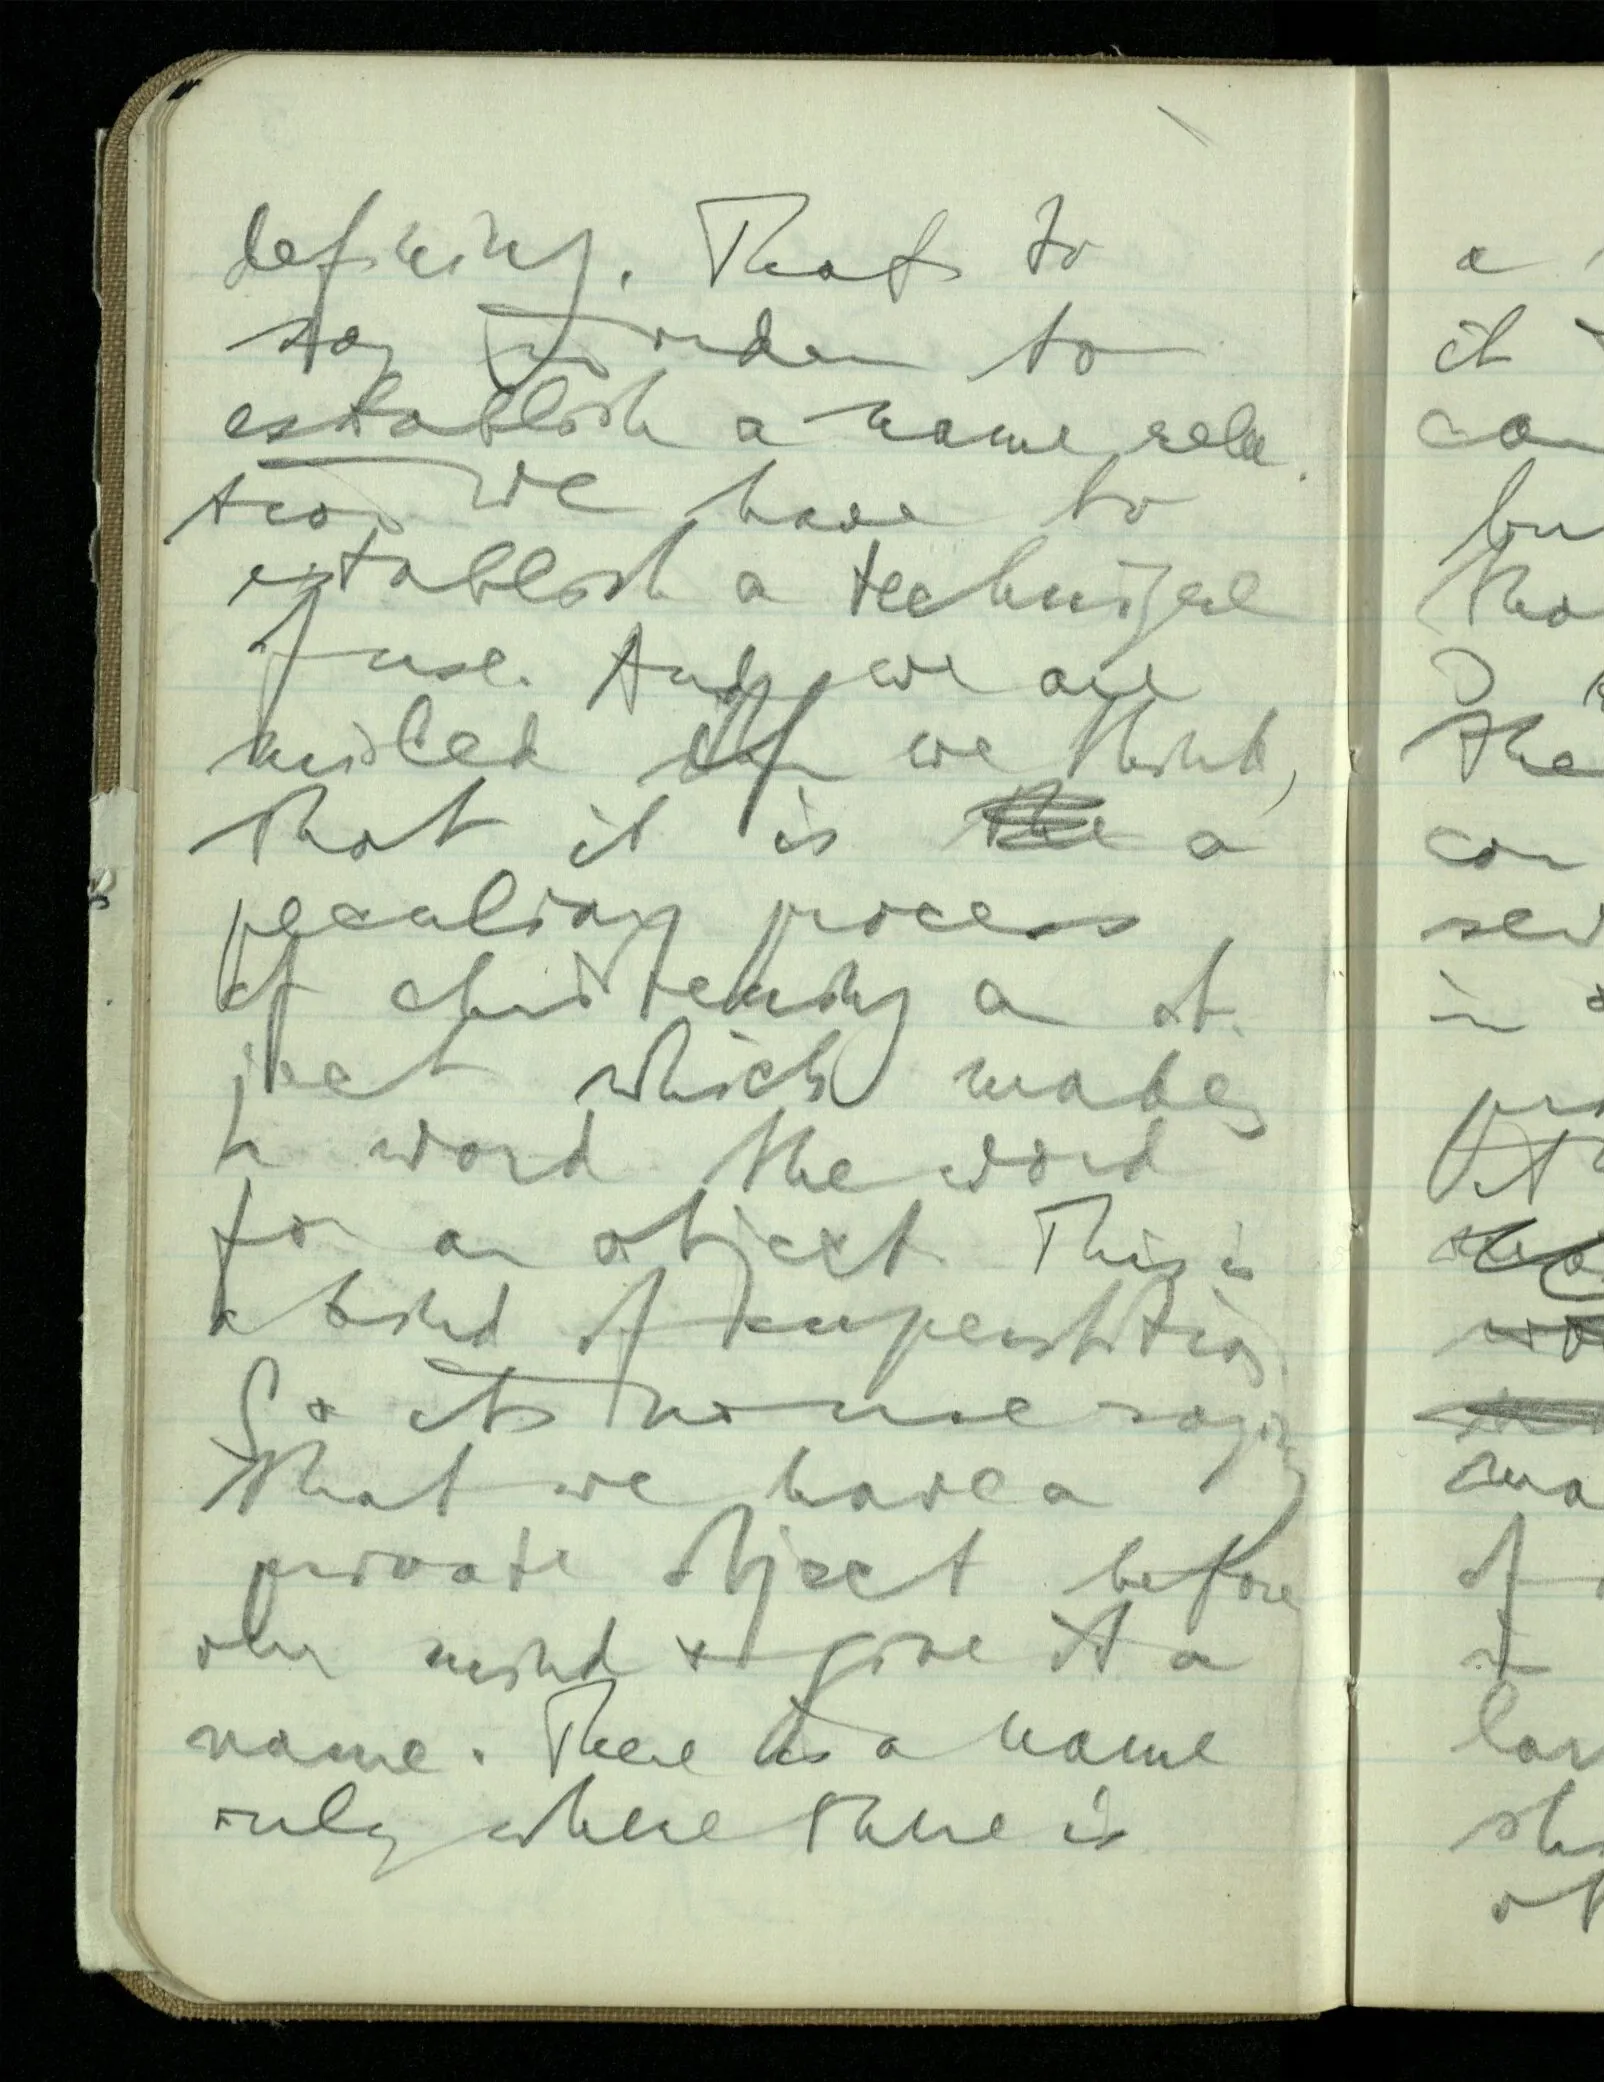 defining. That's to
say in order to
establish a name rela-
tion we have to
establish a technique
of use. And we are
misled if we think,
that it is the a
peculiar process
of christening an ob-
ject which makes
a word the word
for an object. This is
a kind of superstition.
So its no use saying
that we have a
private object before
our mind & give it a
name. There is a name
only where there is
a
it